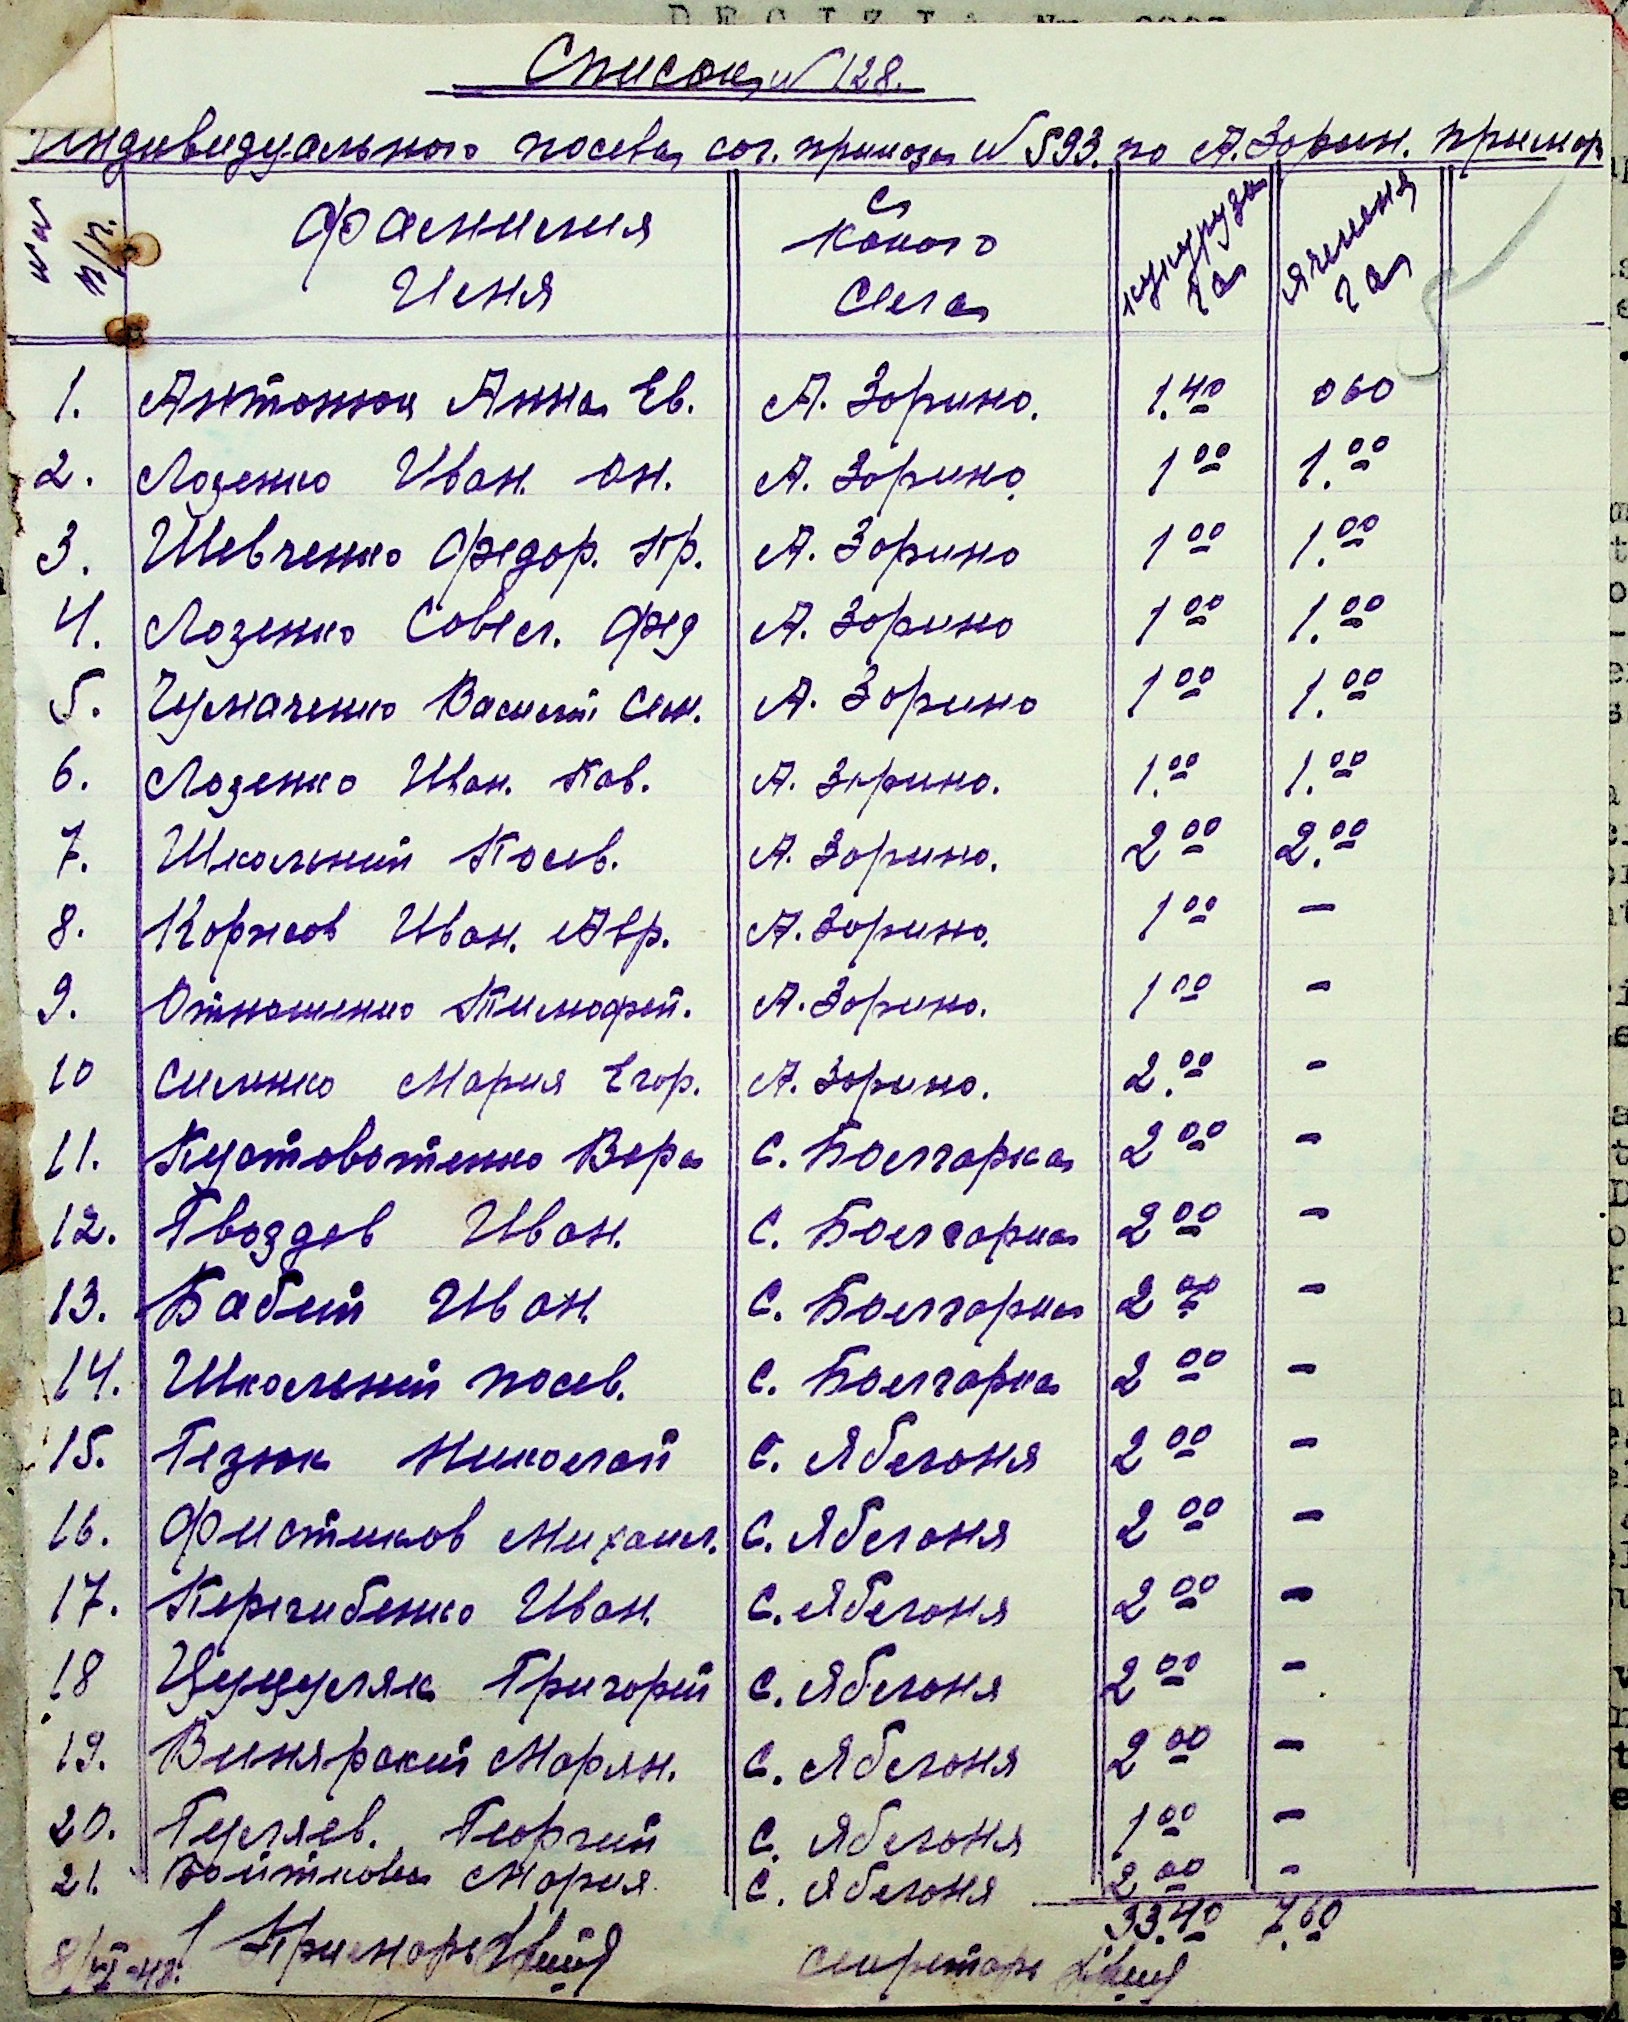 Список N 128.
Индивидуального посева сог. приказа N 593. по А. Зорин. примар
NN п/п. Фамилия Имя С какого села кукуруза га ячменя га
1. Антонюк Анна Ев. А. Зорино. 1.40 060
2. Лозенко Иван. Он. А. Зорино. 1 00 1.00
3. Шевченко Федор. Пр. А. Зорино 1 00 1.00
4. Лозенко Савел. Фед А. Зорино 1 00 1.00
5. Чумаченко Василий Сем. А. Зорино 1 00 1.00
6. Лозенко Иван. Пав. А. Зорино. 1.00 1.00
7. Школьний Посев. А. Зорино. 2 00 2.00
8. Коржов Иван. Авр. А. Зорино. 1 00 –
9. Отношенко Тимофей. А. Зорино. 1 00 –
10 Силенко Мария Егор. А. Зорино. 2.00 –
11. Пустовотенко Вера С. Болгарка 2 00 –
12. Гвоздев Иван. С. Болгарка 2 00 –
13. Бабий Иван. С. Болгарка 2 00 –
14. Школьний посев. С. Болгарка 2 00 –
15. Гезюк Николай С. Яблоня 2 00 –
16. Фистиков Михаил. С. Яблоня 2 00 –
17. Перегибенко Иван. С. Яблоня 2 00 –
18 Цуцуляк Григорий С. Яблоня 2 00 –
19. Винярский Марян. С. Яблоня 2 00 –
20. Гуляев. Георгий С. Яблоня 1 00 –
21. Войткова Мария С. Яблоня 2 00 –
33.40 7.60
Примарь секретарь